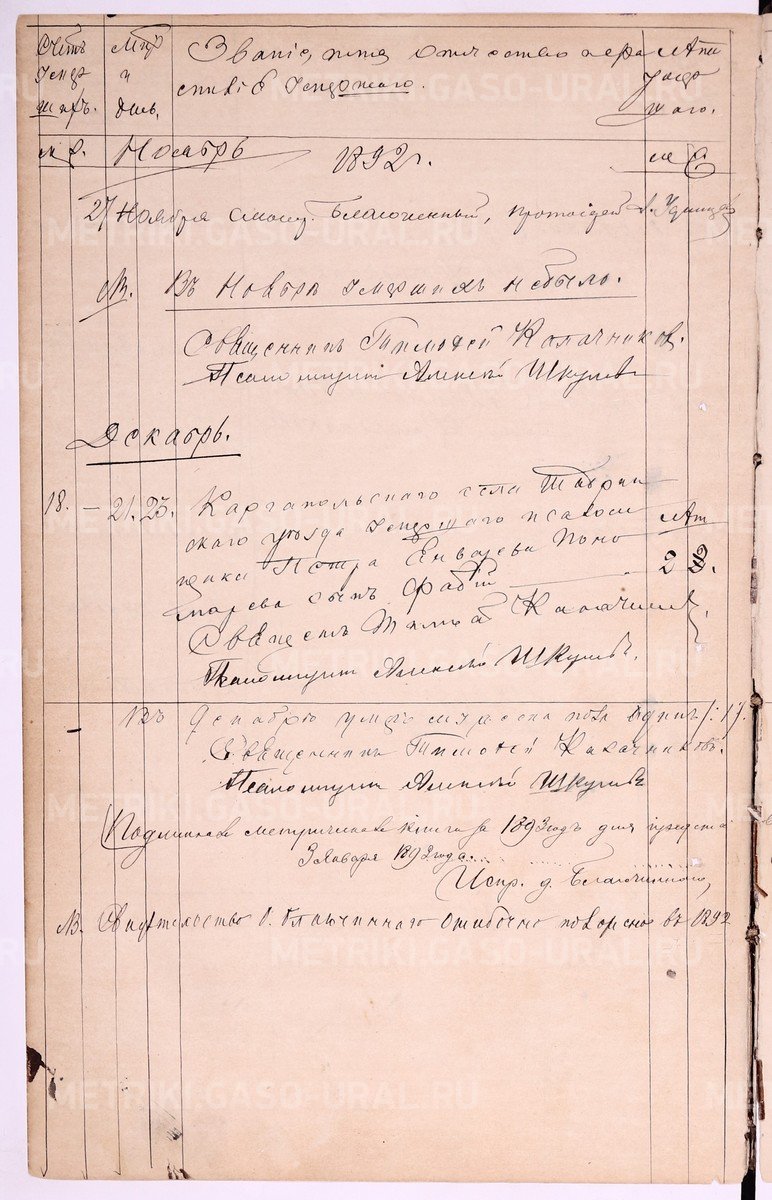 Счетъ умер шихъ. Мцъ и День. Званіе, имя отчество и фа Лѣта
милія умершаго. умер шаго.
м. ж. Ноябрь 1892 г. м. ж.
27 Ноября смотр. Благочинный, протоіерей А. Удинцев
NB. Въ Ноябрѣ умершихъ не было.
Священникъ Тимофей Калачниковъ.
Псаломщикъ Алексѣй Шкулевъ
Декабрь.
18. — 21. 23. Каргапольскаго села Шадрин
скаго уѣзда умершаго псалом
щика Петра Поно Лѣт
марева сынъ 2
Священ. Калачников.
Псаломщикъ Алексѣй Шкулевъ.
Въ Декабрѣ умер мужеска пола одинъ /: 1 /.
Священникъ Тимофей Калачниковъ.
Псаломщикъ Алексѣй Шкулевъ
Подлинная метрическая книга за 1893 годъ для
3 Января 1892 года...
Испр. д. Благочиннаго,
NB. Свидѣтельство О. Благочиннаго ошибочно въ 1892
METRIKI.GASO-URAL.RU